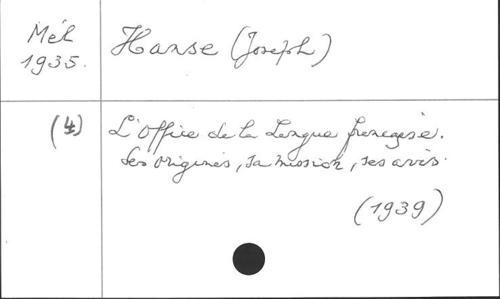 Mél
1935.
Hanse (Joseph)
(4)
L'Office de la Langue française.
Ses origines, sa mission, ses avis.
(1939)